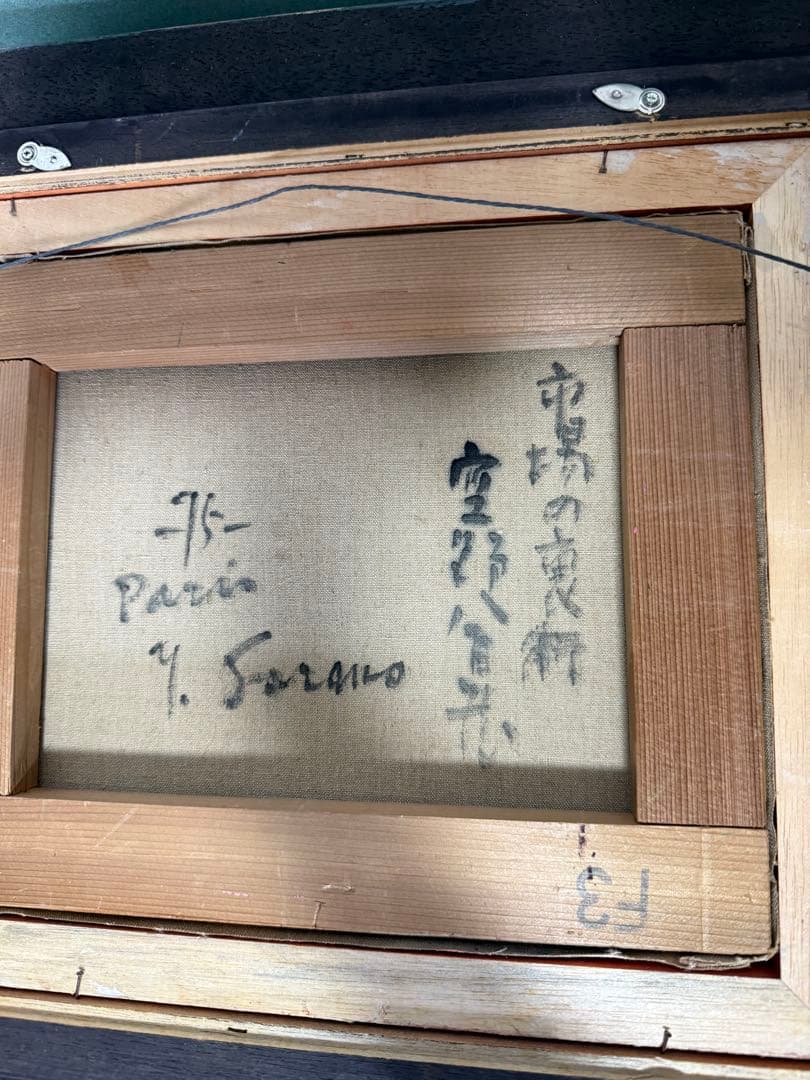 市場の裏街
空野八百蔵
-75-
Paris
Y. Sorano
F3